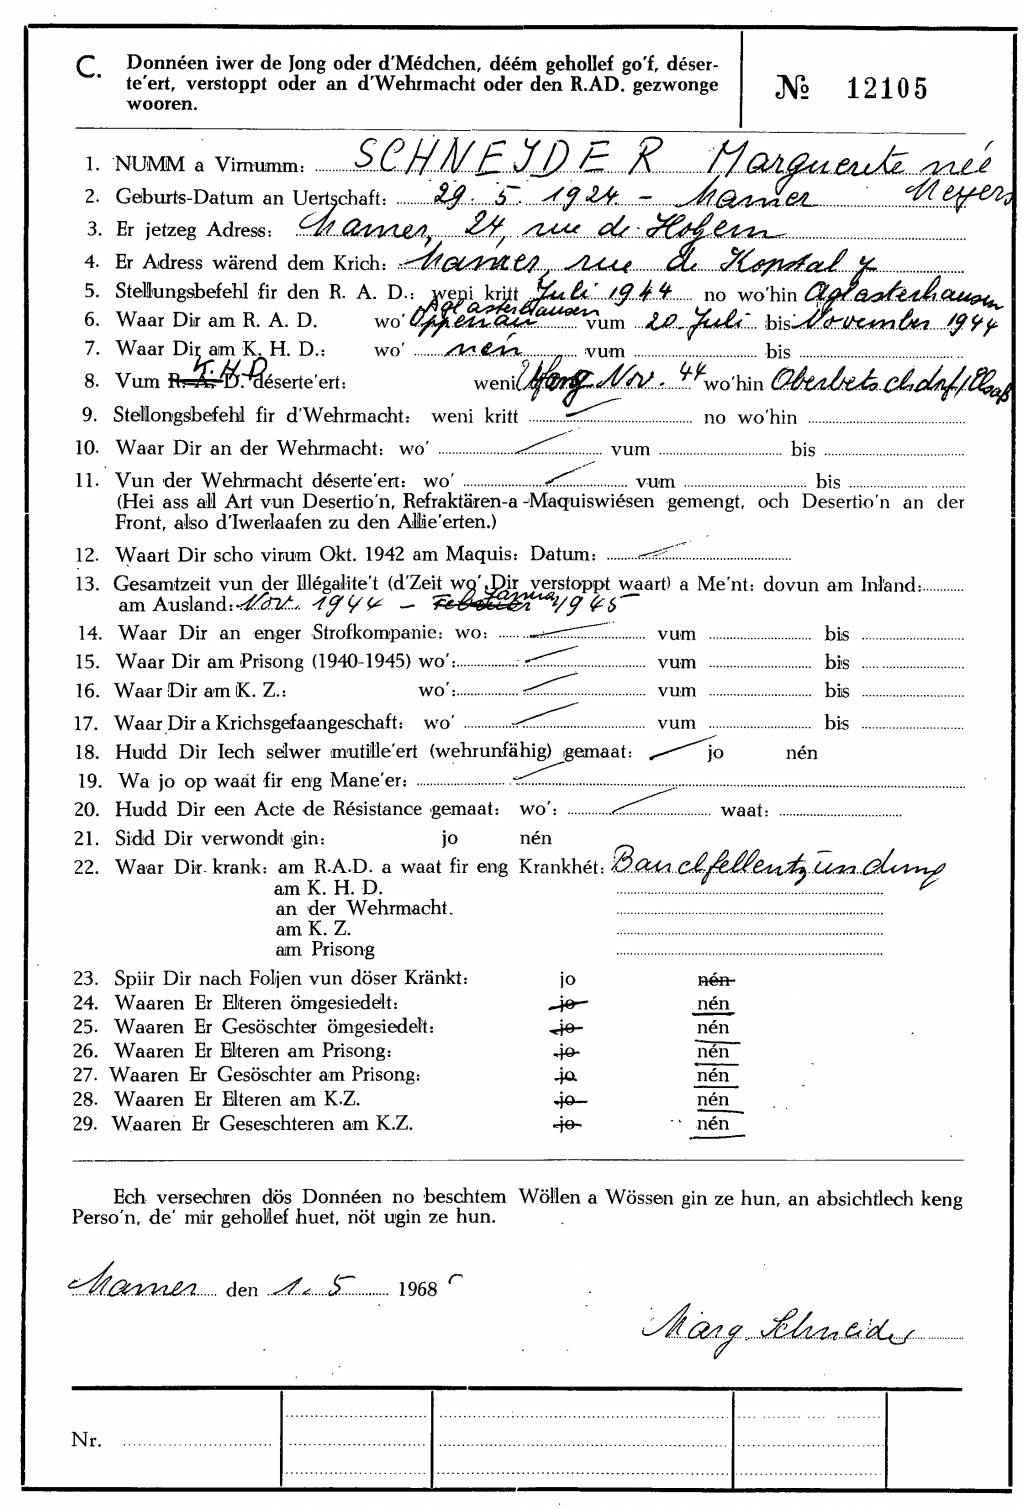 C. Donnéen iwer de Jong oder d'Médchen, déém gehollef go'f, déser-
te'ert, verstoppt oder an d'Wehrmacht oder den R.AD. gezwonge
wooren.
№ 12105
1. NUMM a Virnumm: SCHNEYDER Marguerite née
Meyers
2. Geburts-Datum an Uertschaft: 29. 5. 1924 - Mamer
3. Er jetzeg Adress: Mamer, 24, rue de Holzem
4. Er Adress wärend dem Krich: Mamer, rue de Kopstal 7
5. Stellungsbefehl fir den R. A. D.: weni kritt Juli 1944 no wo'hin Aglasterhausen
Aglasterhausen
6. Waar Dir am R. A. D. wo' Oppenau vum 20 Juli bis November 1944
7. Waar Dir am K. H. D.: wo' nén vum bis
K. H. D
8. Vum R. A. D. déserte'ert: weni Nov. 44 wo'hin Oberbetschdorf/Elsaß
9. Stellongsbefehl fir d'Wehrmacht: weni kritt no wo'hin
10. Waar Dir an der Wehrmacht: wo' vum bis
11. Vun der Wehrmacht déserte'ert: wo' vum bis
(Hei ass all Art vun Desertio'n, Refraktären-a -Maquiswiésen gemengt, och Desertio'n an der
Front, also d'Iwerlaafen zu den Allie'erten.)
12. Waart Dir scho virum Okt. 1942 am Maquis: Datum:
13. Gesamtzeit vun der Illégalite't (d'Zeit wo' Dir verstoppt waart) a Me'nt: dovun am Inland:
Januar
am Ausland: Nov. 1944 - Februar 1945
14. Waar Dir an enger Strofkompanie: wo: vum bis
15. Waar Dir am Prisong (1940-1945) wo': vum bis
16. Waar Dir am K. Z.: wo': vum bis
17. Waar Dir a Krichsgefaangeschaft: wo' vum bis
18. Hudd Dir Iech selwer mutille'ert (wehrunfähig) gemaat: jo nén
19. Wa jo op waat fir eng Mane'er:
20. Hudd Dir een Acte de Résistance gemaat: wo': waat:
21. Sidd Dir verwondt gin: jo nén
22. Waar Dir krank: am R.A.D. a waat fir eng Krankhét: Bauchfellentzündung
am K. H. D.
an der Wehrmacht.
am K. Z.
am Prisong
23. Spiir Dir nach Foljen vun döser Kränkt: jo nén
24. Waaren Er Elteren ömgesiedelt: jo nén
25. Waaren Er Gesöschter ömgesiedelt: jo nén
26. Waaren Er Elteren am Prisong: jo nén
27. Waaren Er Gesöschter am Prisong: jo nén
28. Waaren Er Elteren am K.Z. jo nén
29. Waaren Er Geseschteren am K.Z. jo nén
Ech versechren dös Donnéen no beschtem Wöllen a Wössen gin ze hun, an absichtlech keng
Perso'n, de' mir gehollef huet, nöt ugin ze hun.
Mamer den 1. 5 1968
Marg. Schneider
Nr.